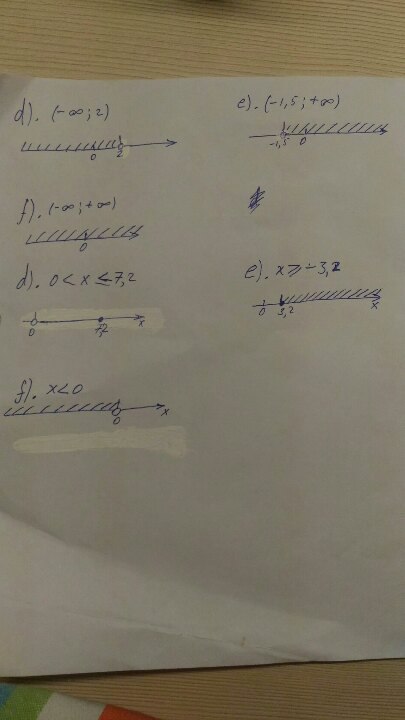 d). (-∞; 2)
0 2
e). (-1,5; +∞)
-1,5 0
f). (-∞; +∞)
0
d). 0 < x ≤ 7,2
0 7,2 x
e). x ≥ -3,2
0 3,2 x
f). x < 0
0 x